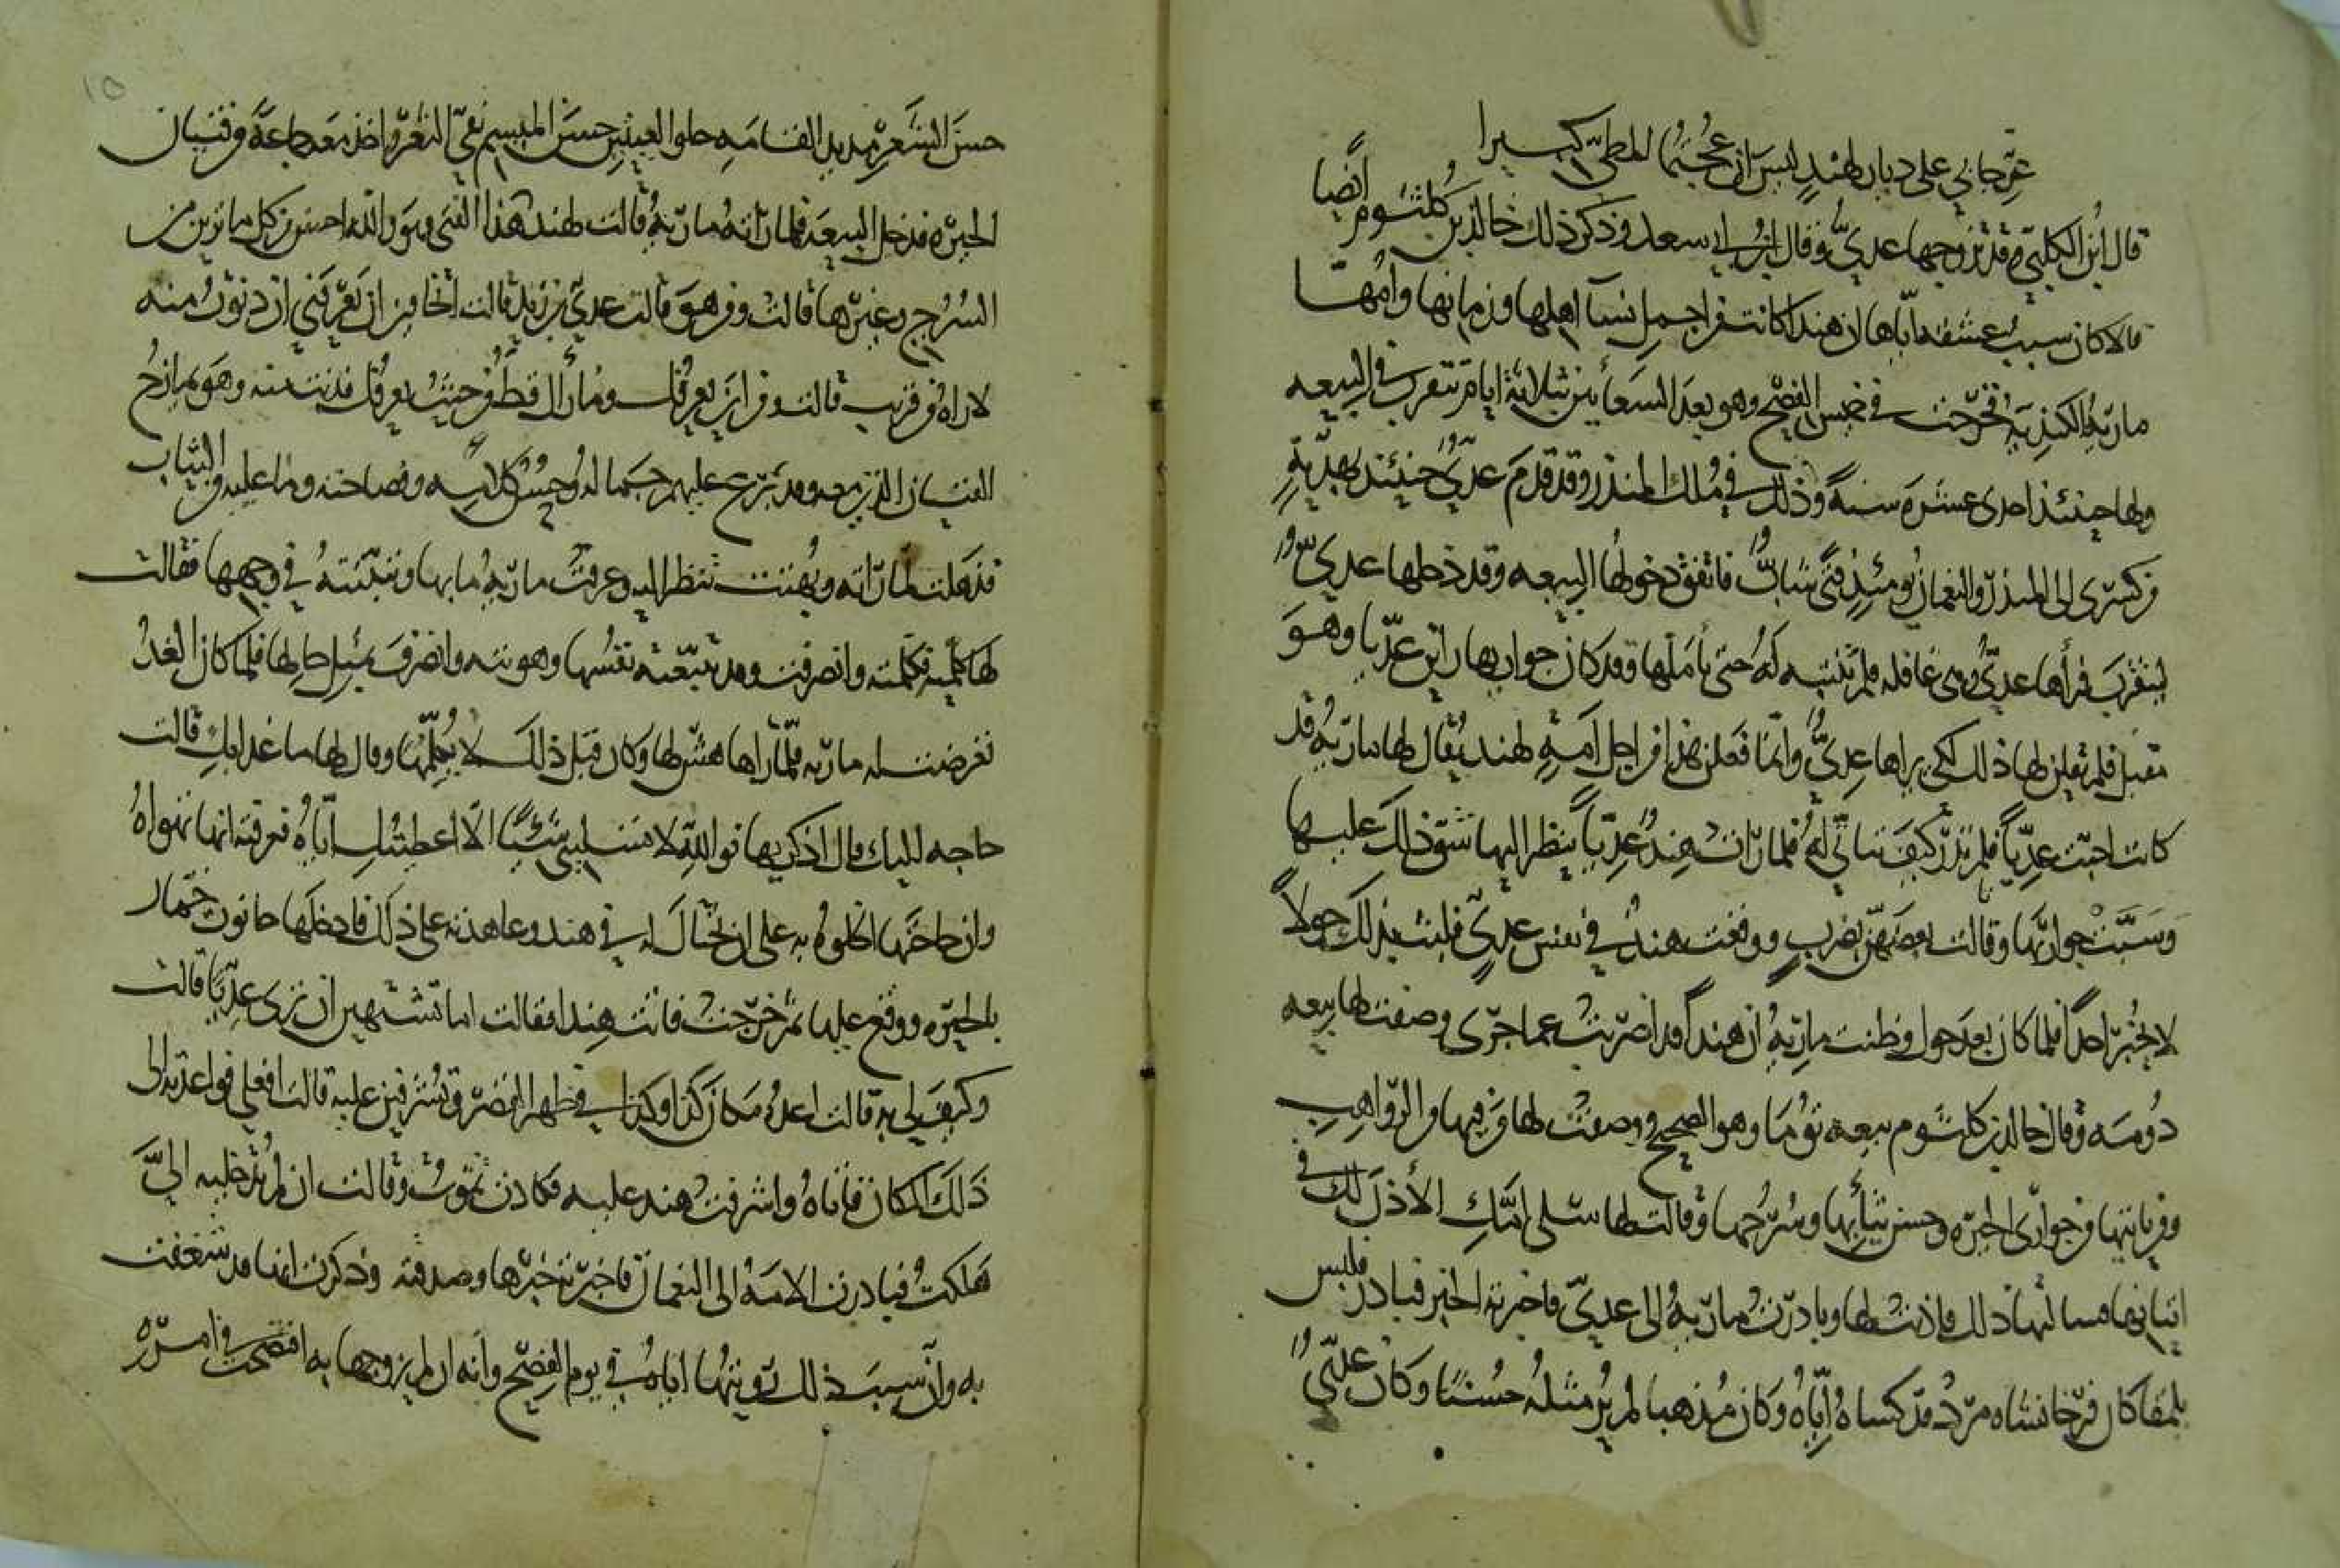 عرّجا بي على ديار لهندٍ ليس ان عُجتُما المطيّ كبيرا
قال ابن الكلبي وقد تزوجها عديّ وقال ابن ابي سعد وذكر ذلك خالد بن كلثوم ايضًا
قالا كان سبب عشقه ايّاها ان هندا كانت من اجمل نسآ اهلها وزمانها وأمّها
مارية الكندية فخرجت في خميس الفِصْح وهو بعد السعانين بثلاثة ايام تتقرب في البيعه
ولها حينئذ احدى عشره سنةً وذلك في مُلك المنذر وقد قدم عديّ حينئذ بهديةٍ
من كسرى الى المنذر والنعمان يومئذٍ فتًى شابّ فاتفق دخولُها البيعه وقد دخلها عديّ
ليتقرب فرأها عديّ وهي غافله فلم تنتبه لهُ حتى تأملها وقد كان جواريها راين عديّا وهو
مقبل فلم يقلن لها ذلك كي يراها عديّ وانما فعلن هذا من اجل امةٍ لهند يُقال لها ماريهُ قد
كانت احبّت عديّاً فلم تدر كيف تتأتّى لهُ فلما رات هندٌ عديّاً ينظر اليها شقّ ذلك عليها
وسبّت جواريها وقالت بعضهنّ بضربٍ ووقعت هندٌ في نفس عديّ فلبث بذلك حولاً
لا يخبر احداً فلما كان بعد حول وظنت ماريةُ ان هنداً قد اضربتْ عما جرى وصفت لها بيعه
دُومه وقال خالد بن كلثوم بيعه توُما وهو الصحيح ووصفت لها من فيها من الرواهب
ومن ياتيها من جوارى الحيره وحسن بنأيها وسُرُجها وقالت لها سلى امّكِ الأذن لك في
اتيانها فسالتها ذلك فاذنت لها وبادرت ماريةُ الى عديّ فاخبرته الخبر فبادر فلبس
يلمقا كان فرخانشاه مرد قد كساهُ ايّاهُ وكان مُذهبا لم يُر مثلهُ حُسنًا وكان عديّ
حسنَ الشعر مديد القامه حلو العينين حسن المبسم نقيّ الثغر واخذ معه جماعةً من فتيان
الحيره فدخل البيعة فلما راته ماريةُ قالت لهند هذا الفتى وهو والله احسن من كل ما ترين من
السُرُج وغيرها قالت ومن هو قالت عديّ بن زيد قالت اتخافين ان يعرفني ان دنوتُ منه
لاراه من قريب قالت ومن اين يعرفك وما رأك قط من حيث يعرفك فدنت منه وهو يمازح
الفتيان الذين معه وقد برع عليهم بجماله وحُسن كلامه وفصاحته وما عليه من الثياب
فذهلت لما راته وبُهتت تنظر اليه وعرفت ماريهُ ما بها وتبيّنتهُ في وجهها فقالت
لها كلّميه فكلّمته وانصرفت وقد تبعتهُ نفسُها وهويته وانصرف بمثل حالها فلما كان الغدُ
تعرضت له ماريه فلمّا راها هشّ لها وكان قبل ذلك لا يُكلّمها وقال لها ما غدا بكِ قالت
حاجه اليك قال اذكريها فوالله لا تسليني شيئًا الا اعطيتُك ايّاهُ فعرفته انها تهواهُ
وان حاجتها الخلوهُ به على ان تحتال له في هند وعاهدته على ذلك فادخلها حانوت خمّار
بالحيره ووقع عليها ثم خرجت فاتت هندا فقالت اما تشتهين ان ترى عديّا قالت
وكيف لي به قالت اعدهُ مكان كذا وكذا في ظهر القصر وتُشرفين عليه قالت افعلي فواعدته الى
ذلك المكان فاتاهُ واشرفت هند عليه فكادت تموتُ وقالت ان لم تُدخليه اليّ
هلكتُ فبادرت الامةُ الى النعمان فاخبرته خبرها وصدقته وذكرت انها قد شغفت
به وان سبب ذلك رويتُها اياهُ في يوم الفِصْح وانه ان لم يزوجها به افتضحت في امره